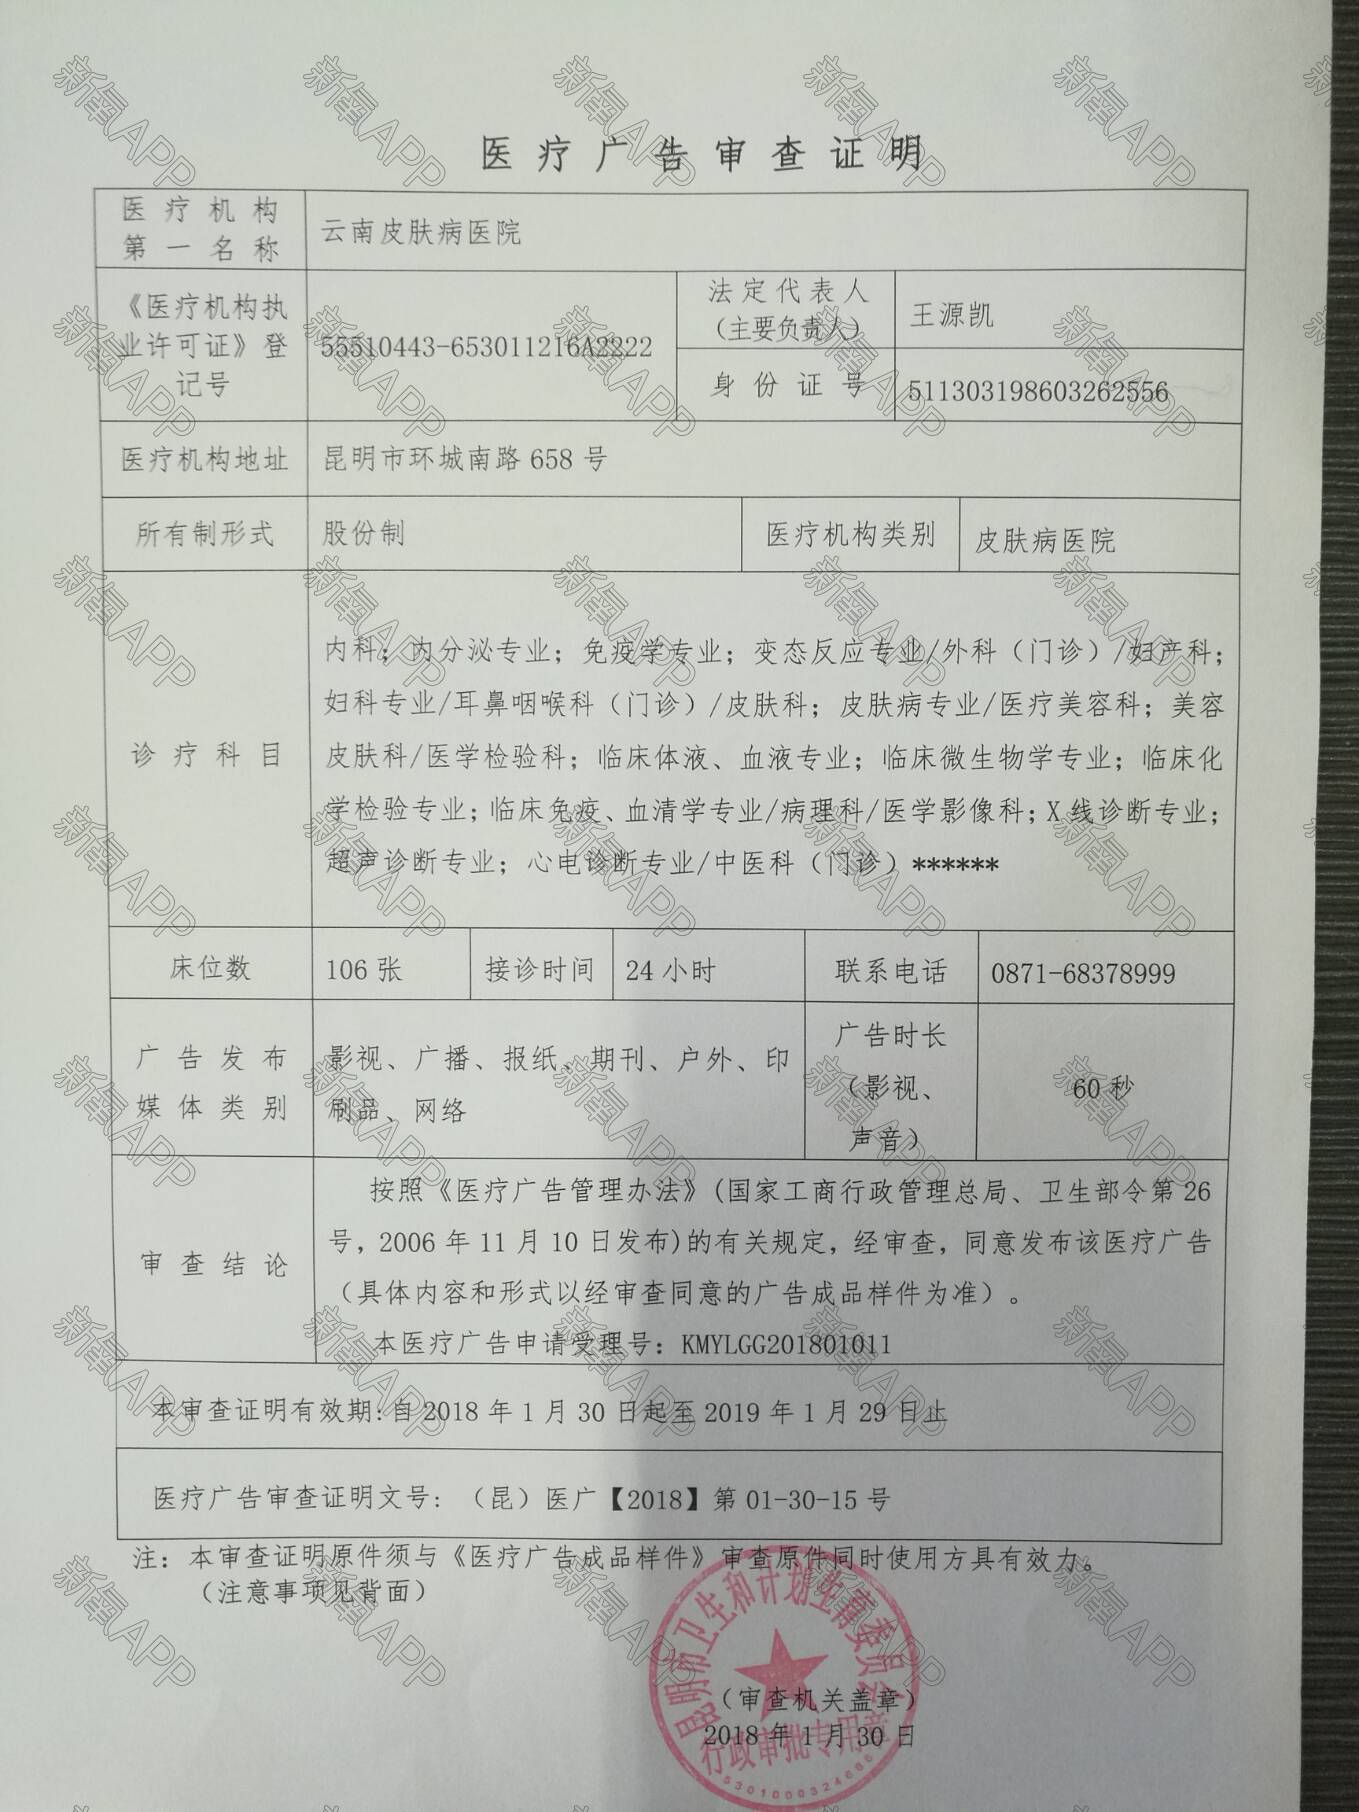 医疗广告审查证明
医疗机构
第一名称
云南皮肤病医院
《医疗机构执
业许可证》登
记号
55510443-653011216A2222
法定代表人
（主要负责人）
王源凯
身份证号
511303198603262556
医疗机构地址
昆明市环城南路 658 号
所有制形式
股份制
医疗机构类别
皮肤病医院
诊疗科目
内科；内分泌专业；免疫学专业；变态反应专业/外科（门诊）/妇产科；
妇科专业/耳鼻咽喉科（门诊）/皮肤科；皮肤病专业/医疗美容科；美容
皮肤科/医学检验科；临床体液、血液专业；临床微生物学专业；临床化
学检验专业；临床免疫、血清学专业/病理科/医学影像科；X 线诊断专业；
超声诊断专业；心电诊断专业/中医科（门诊）******
床位数
106 张
接诊时间
24 小时
联系电话
0871-68378999
广告发布
媒体类别
影视、广播、报纸、期刊、户外、印
刷品、网络
广告时长
（影视、
声音）
60 秒
审查结论
按照《医疗广告管理办法》(国家工商行政管理总局、卫生部令第 26
号，2006 年 11 月 10 日发布)的有关规定，经审查，同意发布该医疗广告
（具体内容和形式以经审查同意的广告成品样件为准）。
本医疗广告申请受理号：KMYLGG201801011
本审查证明有效期：自 2018 年 1 月 30 日起至 2019 年 1 月 29 日止
医疗广告审查证明文号：（昆）医广【2018】第 01-30-15 号
注：本审查证明原件须与《医疗广告成品样件》审查原件同时使用方具有效力。
（注意事项见背面）
昆明市卫生和计划生育委员会
（审查机关盖章）
2018 年 1 月 30 日
行政审批专用章
5301000324686
新氧APP